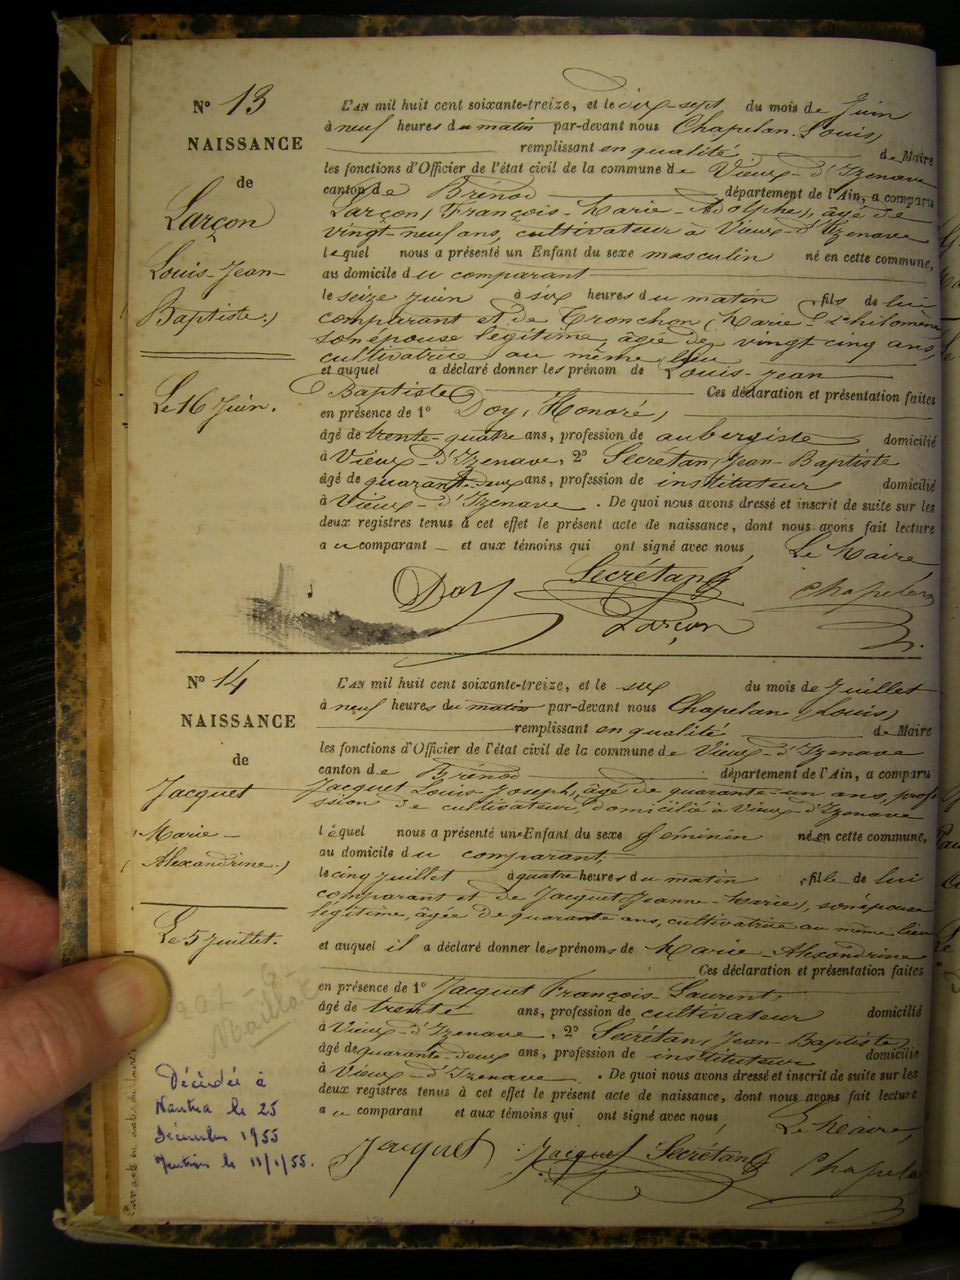 N° 13
NAISSANCE
de
Larçon
Louis-Jean-
Baptiste
Le 16 Juin.
L'AN mil huit cent soixante-treize, et le dix-sept du mois de Juin
à neuf heures du matin par-devant nous Chapelan Louis,
remplissant en qualité de Maire
les fonctions d'Officier de l'état civil de la commune de Vieux-d'Izenave
canton de Brénod département de l'Ain, a comparu
Larçon, François-Marie-Adolphe, âgé de
vingt-neuf ans, cultivateur à Vieux-d'Izenave
lequel nous a présenté un Enfant du sexe masculin né en cette commune,
au domicile du comparant
le seize juin à six heures du matin fils de lui
comparant et de Tronchon, Marie-Philomène
son épouse légitime, âgée de vingt cinq ans,
cultivatrice au même lieu
et auquel a déclaré donner les prénom de Louis-Jean
Baptiste Ces déclaration et présentation faites
en présence de 1° Doy, Honoré,
âgé de trente-quatre ans, profession de aubergiste domicilié
à Vieux-d'Izenave, 2° Secrétan, Jean-Baptiste
âgé de quarante-deux ans, profession de instituteur domicilié
à Vieux-d'Izenave. De quoi nous avons dressé et inscrit de suite sur les
deux registres tenus à cet effet le présent acte de naissance, dont nous avons fait lecture
au comparant et aux témoins qui ont signé avec nous, Le Maire,
Doy Secrétan Chapelan
Larçon
N° 14
NAISSANCE
de
Jacquet
Marie-
(Alexandrine)
Le 5 juillet.
Maillot
Décédée à
Nantua le 25
Décembre 1955
L'AN mil huit cent soixante-treize, et le six du mois de Juillet
à neuf heures du matin par-devant nous Chapelan (Louis)
remplissant en qualité de Maire
les fonctions d'Officier de l'état civil de la commune de Vieux-d'Izenave
canton de Brénod département de l'Ain, a comparu
Jacquet Louis Joseph, âgé de quarante-un ans, profes-
sion de cultivateur, domicilié à Vieux d'Izenave
léquel nous a présenté un Enfant du sexe féminin né en cette commune,
au domicile du comparant,
le cinq juillet à quatre heures du matin fille de lui
comparant et de Jacquet Jeanne-Marie, son épouse
légitime, âgée de quarante ans, cultivatrice au même lieu
et auquel il a déclaré donner les prénoms de Marie-Alexandrine
Ces déclaration et présentation faites
en présence de 1° Jacquet François-Laurent,
âgé de trente ans, profession de cultivateur domicilié
à Vieux-d'Izenave, 2° Secrétan, Jean-Baptiste,
âgé de quarante-deux ans, profession de instituteur domicilié
à Vieux-d'Izenave. De quoi nous avons dressé et inscrit de suite sur les
deux registres tenus à cet effet le présent acte de naissance, dont nous avons fait lecture
au comparant et aux témoins qui ont signé avec nous, Le Maire,
Jacquet Jacquet Secrétan Chapelan